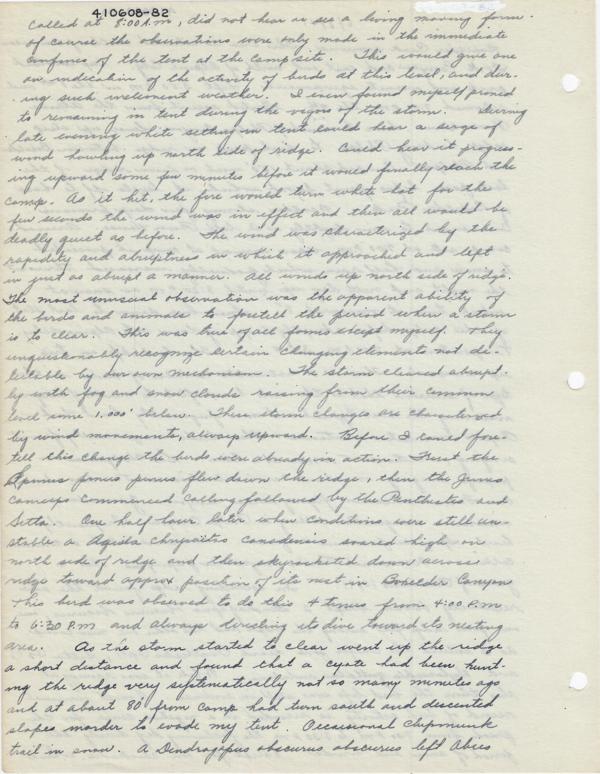 410608-82
Called at 8:00 A.M, did not hear or see a living moving form.
Of course the observations were only made in the immediate
confines of the tent at the camp site. This would give one
an indication of the activity of birds at this level, and dur-
ing such inclement weather. I even found myself proned
to remaining in tent during the vigors of the storm. During
late evening while setting in tent could hear a serge of
wind howling up north side of ridge. Could hear it progress-
ing upward some few minutes before it would finally reach the
camp. As it hit, the fire would turn white hot for the
few seconds the wind was in effect and then all would be
deadly quiet as before. The wind was characterized by the
rapidity and abruptness in which it approached and left
in just as abrupt a manner. All winds up north side of ridge.
The most unusual observation was the apparent ability of
the birds and animals to foretell the period when a storm
is to clear. This was true of all forms except myself. They
unquestionably recognize certain changing elements not de-
tectable by our own mechanism. The storm cleared abrupt-
ly with fog and snow clouds raising from their common
level some 1,000' below. These storm changes are characterized
by wind movements, always upward. Before I could fore-
tell this change the birds were already in action. First the
Spinus pinus pinus flew down the ridge, then the Junco
caniceps commenced calling followed by the Penthestes and
Sitta. One half hour later when conditions were still un-
stable a Aquila chrysaetos canadensis soared high on
north side of ridge and then skyrocketed down across
ridge toward approx position of its nest in Boxelder Canyon
This bird was observed to do this 4 times from 4:00 P.M
to 6:30 P.M and always directing its dive toward its nesting
area. As the storm started to clear went up the ridge
a short distance and found that a cyote had been hunt-
ing the ridge very systematically not so many minutes ago
and at about 80' from camp had turn south and descented
slopes inorder to evade my tent. Occassional Chipmunk
trail in snow. A Dendragapus obscurus obscurus left Abies